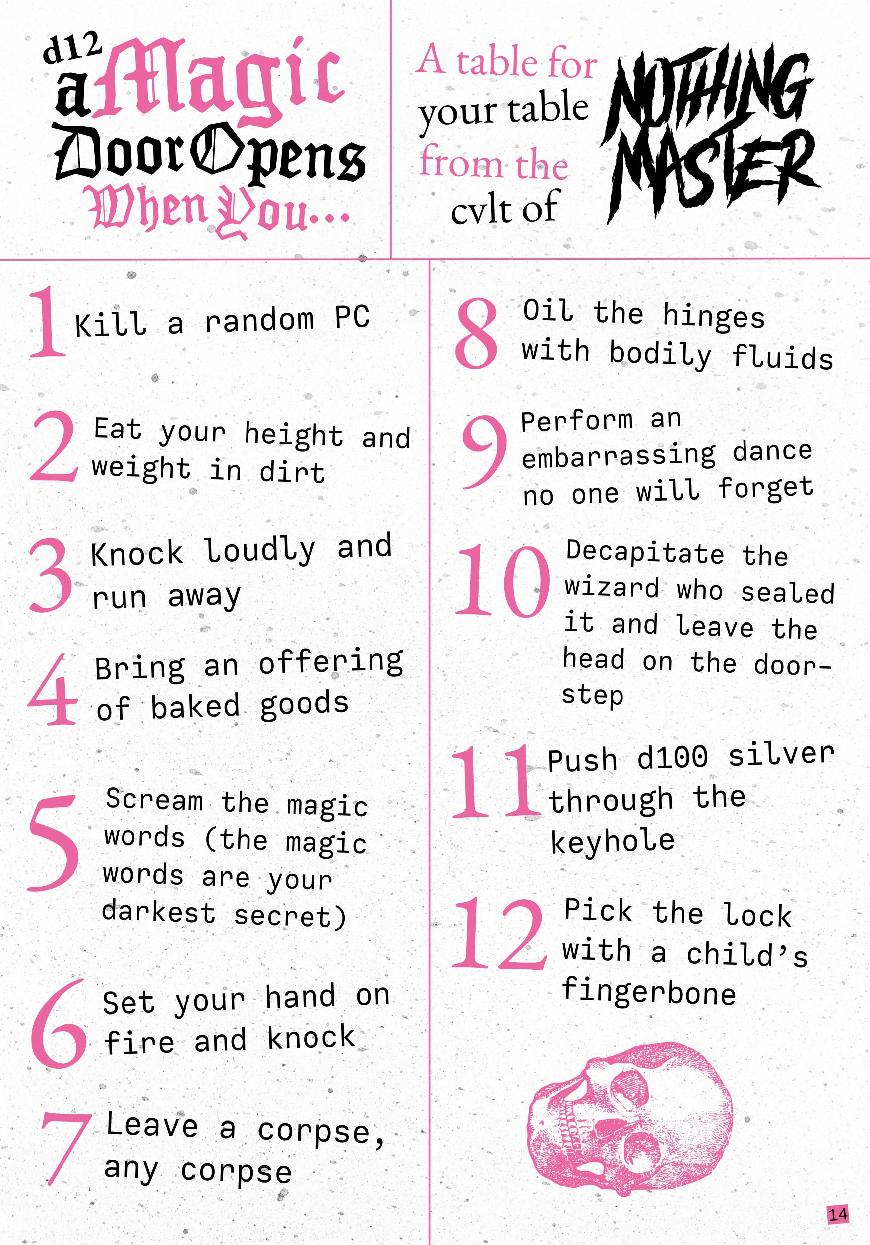 d12
a Magic
Door Opens
When You...
A table for
your table
from the
cvlt of
NOTHING
MASTER
1 Kill a random PC
2 Eat your height and
weight in dirt
3 Knock loudly and
run away
4 Bring an offering
of baked goods
5 Scream the magic
words (the magic
words are your
darkest secret)
6 Set your hand on
fire and knock
7 Leave a corpse,
any corpse
8 Oil the hinges
with bodily fluids
9 Perform an
embarrassing dance
no one will forget
10 Decapitate the
wizard who sealed
it and leave the
head on the door-
step
11 Push d100 silver
through the
keyhole
12 Pick the lock
with a child’s
fingerbone
14